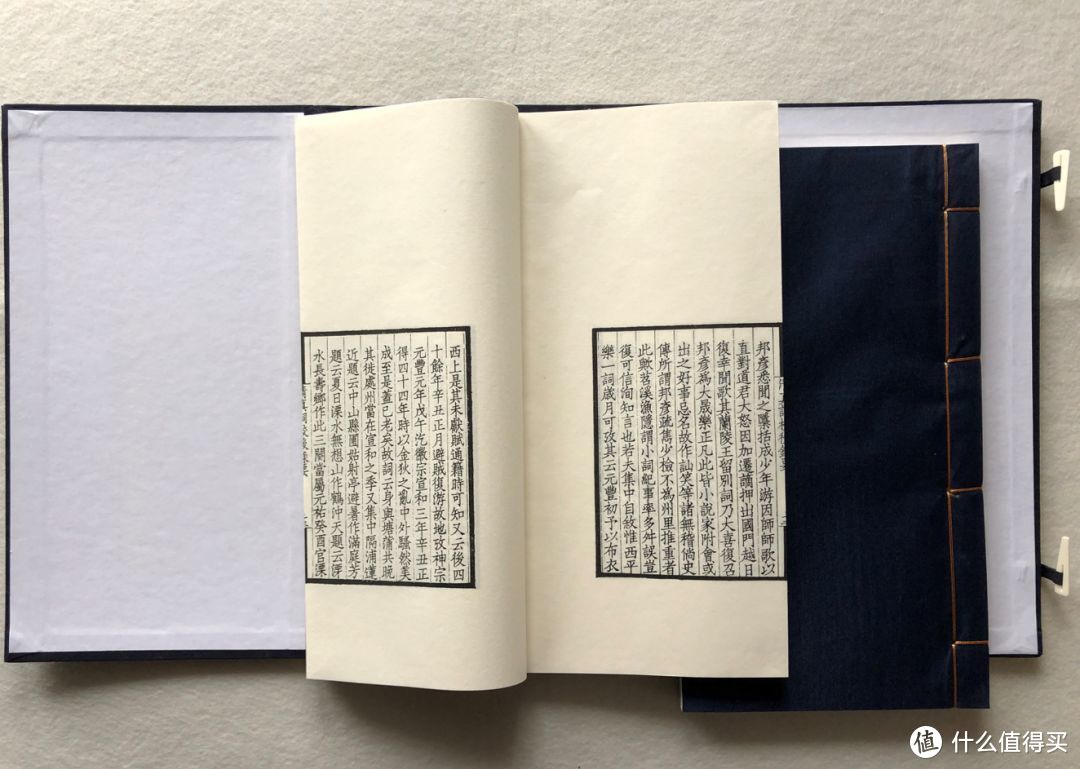 邦彥悉聞之檃括成少年游因師師歌以
直對道君大怒因加遷謫押出國門越日
復幸聞歌其蘭陵王留別詞乃大喜復召
邦彥為大晟樂正凡此皆小說家附會或
出之好事忌名故作訕笑等諸無稽倘史
傳所謂邦彥疏雋少檢不為州里推重者
此歟苕溪漁隱謂小詞紀事率多舛誤豈
復可信洵知言也若夫集中自敘惟西平
樂一詞歲月可攷其云元豐初予以布衣
西上是其未獻賦通籍時可知又云後四
十餘年辛丑正月避賊復游故地攷神宗
元豐元年戊午汔徽宗宣和三年辛丑正
得四十四年時以金狄之亂中外騷然美
成至是蓋已老矣故詞云身與塘蒲共晚
其徙處州當在宣和之季又集中隔浦蓮
近題云中山縣圃姑射亭避暑作滿庭芳
題云夏日溧水無想山作鶴沖天題云溧
水長壽鄉作此三闋當屬元祐癸酉官溧
值 什么值得买